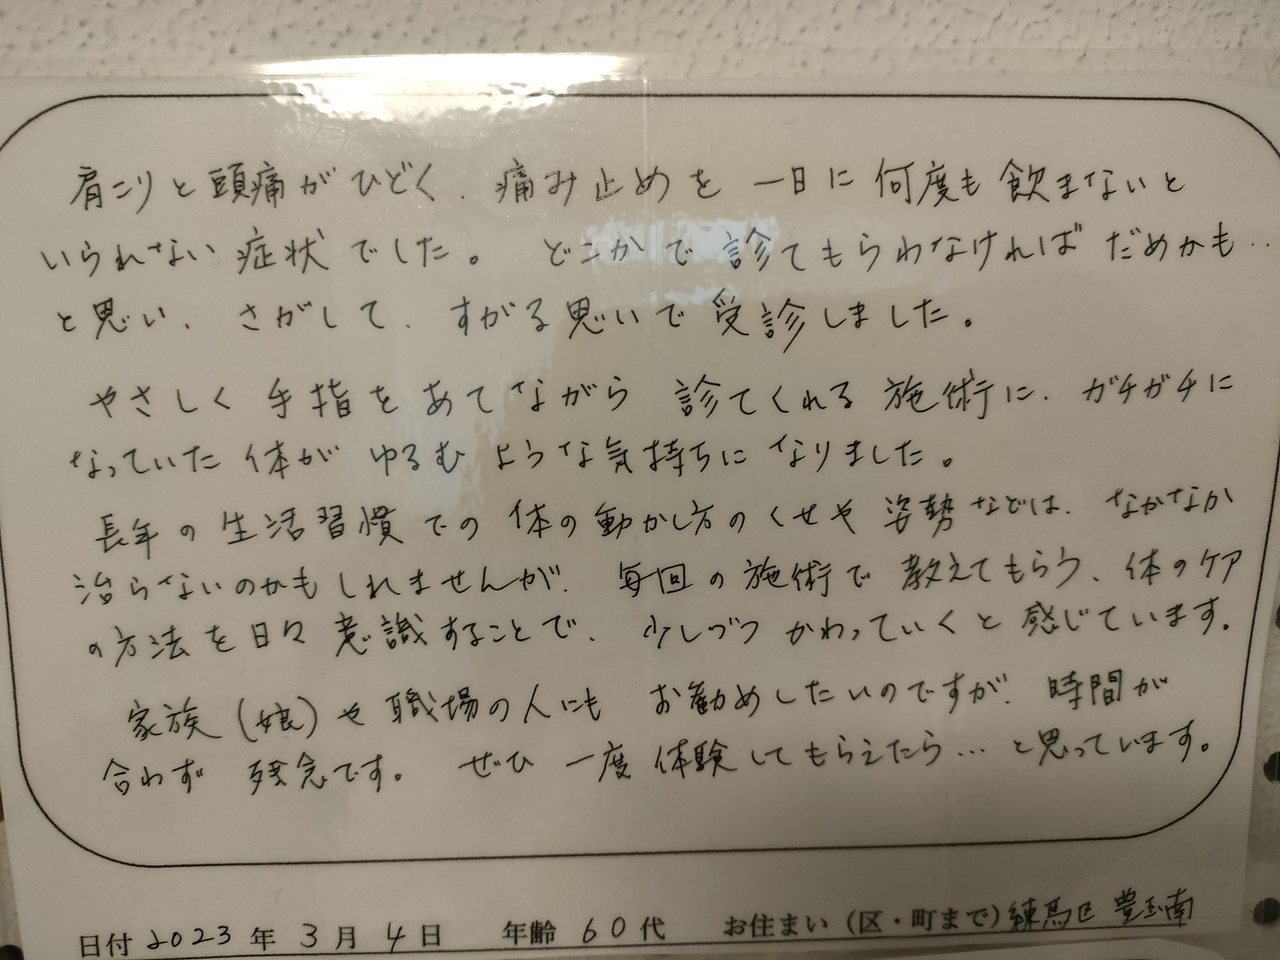 肩こりと頭痛がひどく、痛み止めを一日に何度も飲まないと
いられない症状でした。どこかで診てもらわなければだめかも‥
と思い、さがして、すがる思いで受診しました。
やさしく手指をあてながら診てくれる施術に、ガチガチに
なっていた体がゆるむような気持ちになりました。
長年の生活習慣での体の動かし方のくせや姿勢などは、なかなか
治らないのかもしれませんが、毎回の施術で教えてもらう、体のケア
の方法を日々意識することで、少しづつかわっていくと感じています。
家族(娘)や職場の人にもお勧めしたいのですが、時間が
合わず残念です。ぜひ一度体験してもらえたら…と思っています。
日付 2023年 3月 4日 年齢 60代 お住まい(区・町まで)練馬区 豊玉南